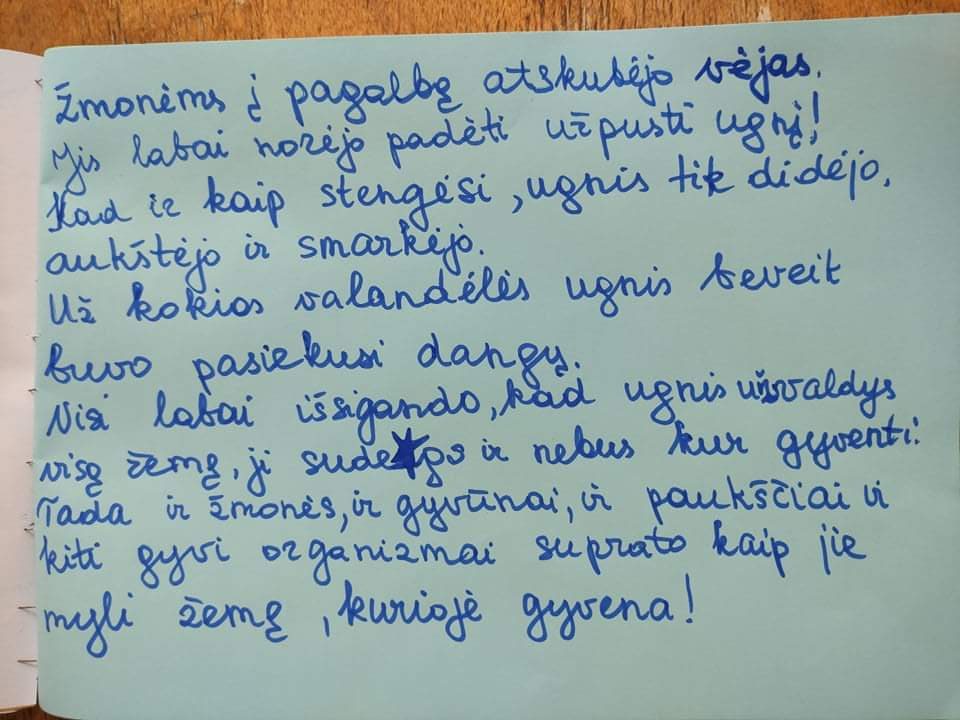 Žmonėms į pagalbą atskubėjo vėjas.
Jis labai norėjo padėti užpusti ugnį!
Kad ir kaip stengėsi, ugnis tik didėjo,
aukštėjo ir smarkėjo.
Už kokios valandėlės ugnis beveik
buvo pasiekusi dangų.
Visi labai išsigando, kad ugnis užsvaldys
visą žemę, ji sudegs ir nebus kur gyventi.
Tada ir žmonės, ir gyvūnai, ir paukščiai ir
kiti gyvi organizmai suprato kaip jie
myli žemę, kurioje gyvena!